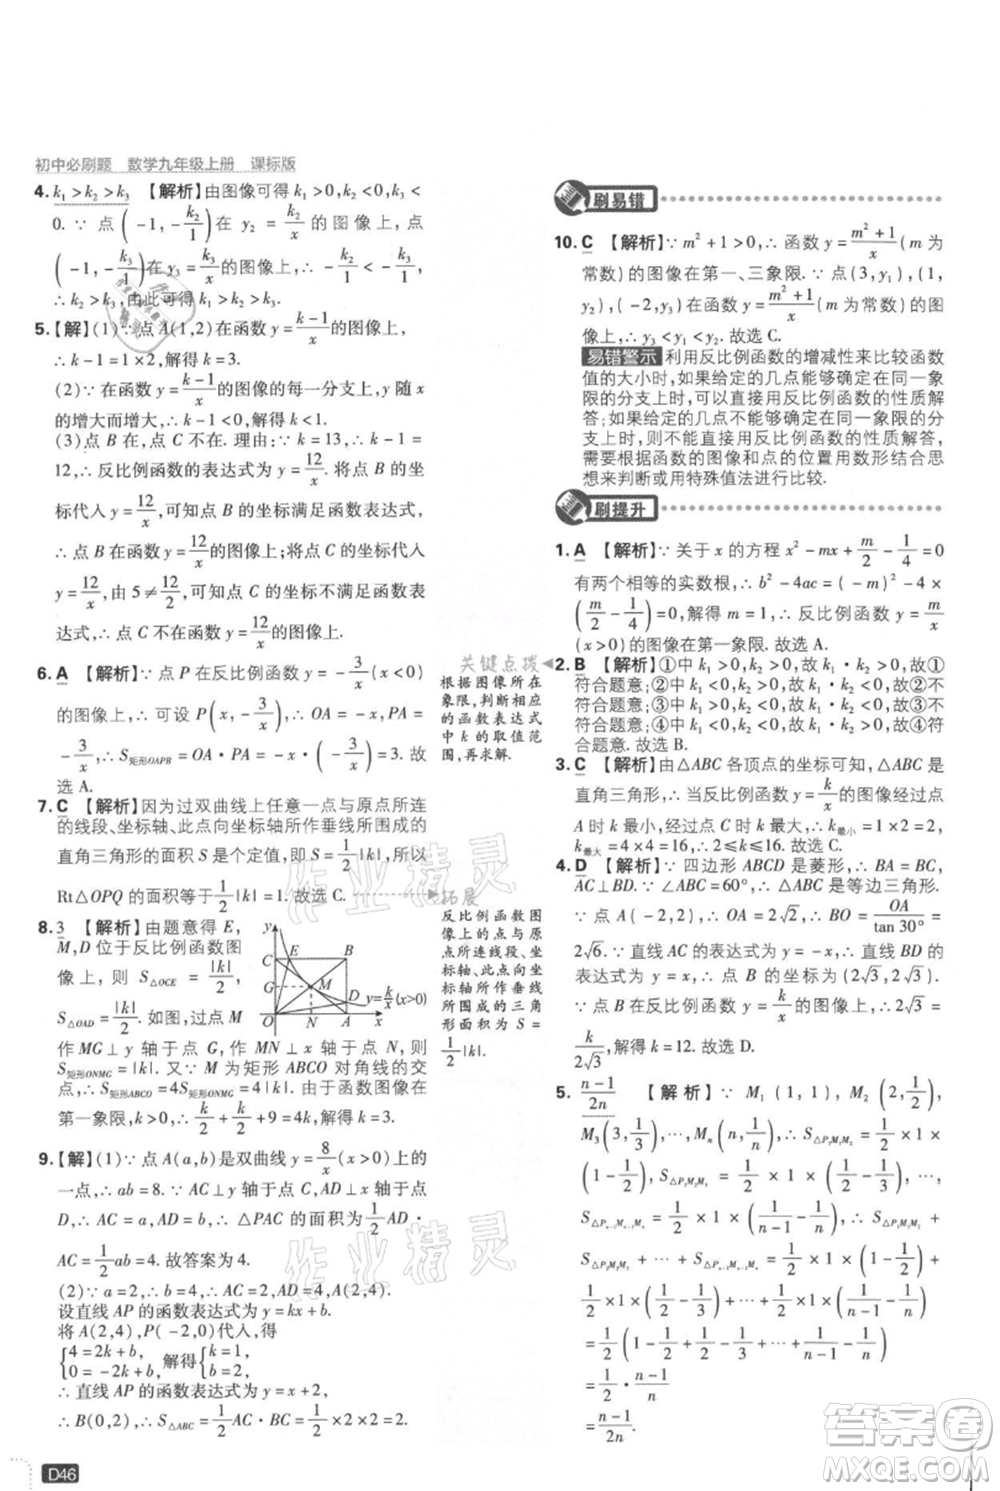 初中必刷题 数学九年级上册 课标版
4. k₁>k₂>k₃ 【解析】由图像可得 k₁>0,k₂<0,k₃<
0. ∵ 点(-1,-k₂/1)在 y₂=k₂/x 的图像上,点
(-1,-k₃/1)在 y₃=k₃/x 的图像上,∴ -k₂/1<
-k₃/1,∴ k₂>k₃,由此可得 k₁>k₂>k₃.
5.【解】(1)∵点 A(1,2)在函数 y=(k-1)/x 的图像上,
∴ k-1=1×2,解得 k=3.
(2)∵在函数 y=(k-1)/x 的图像的每一分支上,y 随 x
的增大而增大,∴ k-1<0,解得 k<1.
(3)点 B 在,点 C 不在. 理由:∵ k=13,∴ k-1=
12,∴ 反比例函数的表达式为 y=12/x. 将点 B 的坐
标代入 y=12/x,可知点 B 的坐标满足函数表达式,
∴ 点 B 在函数 y=12/x 的图像上;将点 C 的坐标代入
y=12/x,由 5≠12/2,可知点 C 的坐标不满足函数表
达式,∴ 点 C 不在函数 y=12/x 的图像上.
6. A 【解析】∵ 点 P 在反比例函数 y=-3/x(x<0)
的图像上,∴ 可设 P(x,-3/x),∴ OA=-x,PA=
-3/x,∴ S矩形OAPB=OA·PA=-x·(-3/x)=3. 故
选 A.
7. C 【解析】因为过双曲线上任意一点与原点所连
的线段、坐标轴、此点向坐标轴所作垂线所围成的
直角三角形的面积 S 是定值,即 S=1/2|k|,所以
Rt△OPQ 的面积等于1/2|k|=1. 故选 C.
8. 3 【解析】由题意得 E,
M,D 位于反比例函数图
像上,则 S△OCE=|k|/2,
S△OAD=|k|/2. 如图,过点 M
作 MG⊥y 轴于点 G,作 MN⊥x 轴于点 N,则
S矩形ONMG=|k|. 又∵ M 为矩形 ABCO 对角线的交
点,∴ S矩形ABCO=4S矩形ONMG=4|k|. 由于函数图像在
第一象限,k>0,则k/2+k/2+9=4k,解得 k=3.
y
C
E
B
G
M
D
y=k/x(x>0)
O
N
A
x
9.【解】(1)∵ 点 A(a,b)是双曲线 y=8/x(x>0)上的
一点,∴ ab=8. ∵ AC⊥y 轴于点 C,AD⊥x 轴于点
D,∴ AC=a,AD=b,∴ △PAC 的面积为1/2AD·
AC=1/2ab=4. 故答案为 4.
(2)∵ a=2,∴ b=4,∴ AC=2,AD=4,A(2,4).
设直线 AP 的函数表达式为 y=kx+b.
将 A(2,4),P(-2,0)代入,得
{4=2k+b, 0=-2k+b, 解得{k=1, b=2,
∴ 直线 AP 的函数表达式为 y=x+2,
∴ B(0,2),∴ S△ABC=1/2AC·BC=1/2×2×(4-2)=2.
关键点拨
根据图像所在
象限,判断相应
的函数表达式
中 k 的取值范
围,再求解.
拓展
反比例函数图
像上的点与原
点所连线段、坐
标轴、此点向坐
标轴所作垂线
所围成的三角
形面积为 S=
1/2|k|.
刷易错
10. C 【解析】∵ m²+1>0,∴ 函数 y=(m²+1)/x(m 为
常数)的图像在第一、三象限. ∵ 点(3,y₁),(1,
y₂),(-2,y₃)在函数 y=(m²+1)/x(m 为常数)的图
像上,∴ y₃<y₁<y₂. 故选 C.
易错警示 利用反比例函数的增减性来比较函数
值的大小时,如果给定的几点能够在同一象
限的分支上时,可以直接用反比例函数的性质解
答;如果给定的几点不能够在同一象限的分
支上时,则不能直接用反比例函数的性质解答,
需要根据函数的图像和点的位置用数形结合思
想来判断或用特殊值法进行比较.
刷提升
1. A 【解析】∵ 关于 x 的方程 x²-mx+m/2-1/4=0
有两个相等的实数根,∴ b²-4ac=(-m)²-4·
(m/2-1/4)=0,解得 m=1,∴ 反比例函数 y=m/x
(x>0)的图像在第一象限. 故选 A.
2. B 【解析】①中 k₁>0,k₂>0,故 k₁·k₂>0,故①
符合题意;②中 k₁<0,k₂>0,故 k₁·k₂<0,故②不
符合题意;③中 k₁>0,k₂<0,故 k₁·k₂<0,故③不
符合题意;④中 k₁<0,k₂<0,故 k₁·k₂>0,故④符
合题意. 故选 B.
3. C 【解析】由△ABC 各顶点的坐标可知,△ABC 是
直角三角形,∴ 当反比例函数 y=k/x 的图像经过点
A 时 k 最小,经过点 C 时 k 最大,∴ k最小=1×2=2,
k最大=4×4=16,∴ 2≤k≤16. 故选 C.
4. D 【解析】∵ 四边形 ABCD 是菱形,∴ BA=BC,
AC⊥BD. ∵ ∠ABC=60°,∴ △ABC 是等边三角形.
∵ 点 A(2,-2),∴ OA=2√2,∴ BO=OA/tan 30°=
2√6. ∵ 直线 AC 的表达式为 y=-x,∴ 直线 BD 的
表达式为 y=x,∴ 点 B 的坐标为(2√3,2√3).
∵ 点 B 在反比例函数 y=k/x 的图像上,∴ 2√3=
k/(2√3),解得 k=12. 故选 D.
5. (n-1)/2n 【解析】∵ M₁(1,1),M₂(2,1/2),
M₃(3,1/3),…,Mₙ(n,1/n),∴ S△P₁M₁M₂=1/2×1×
(1-1/2),S△P₂M₂M₃=1/2×1×(1/2-1/3),…,
S△Pₙ₋₁Mₙ₋₁Mₙ=1/2×1×(1/(n-1)-1/n),∴ S△P₁M₁M₂+
S△P₂M₂M₃+…+S△Pₙ₋₁Mₙ₋₁Mₙ=1/2×1×(1-1/2)+
1/2×1×(1/2-1/3)+…+1/2×1×(1/(n-1)-1/n)
=1/2(1-1/2+1/2-1/3+…+1/(n-1)-1/n)
=1/2·(n-1)/n
=(n-1)/2n.
D46
作业精灵
作业精灵
答案圈
MXQE.COM